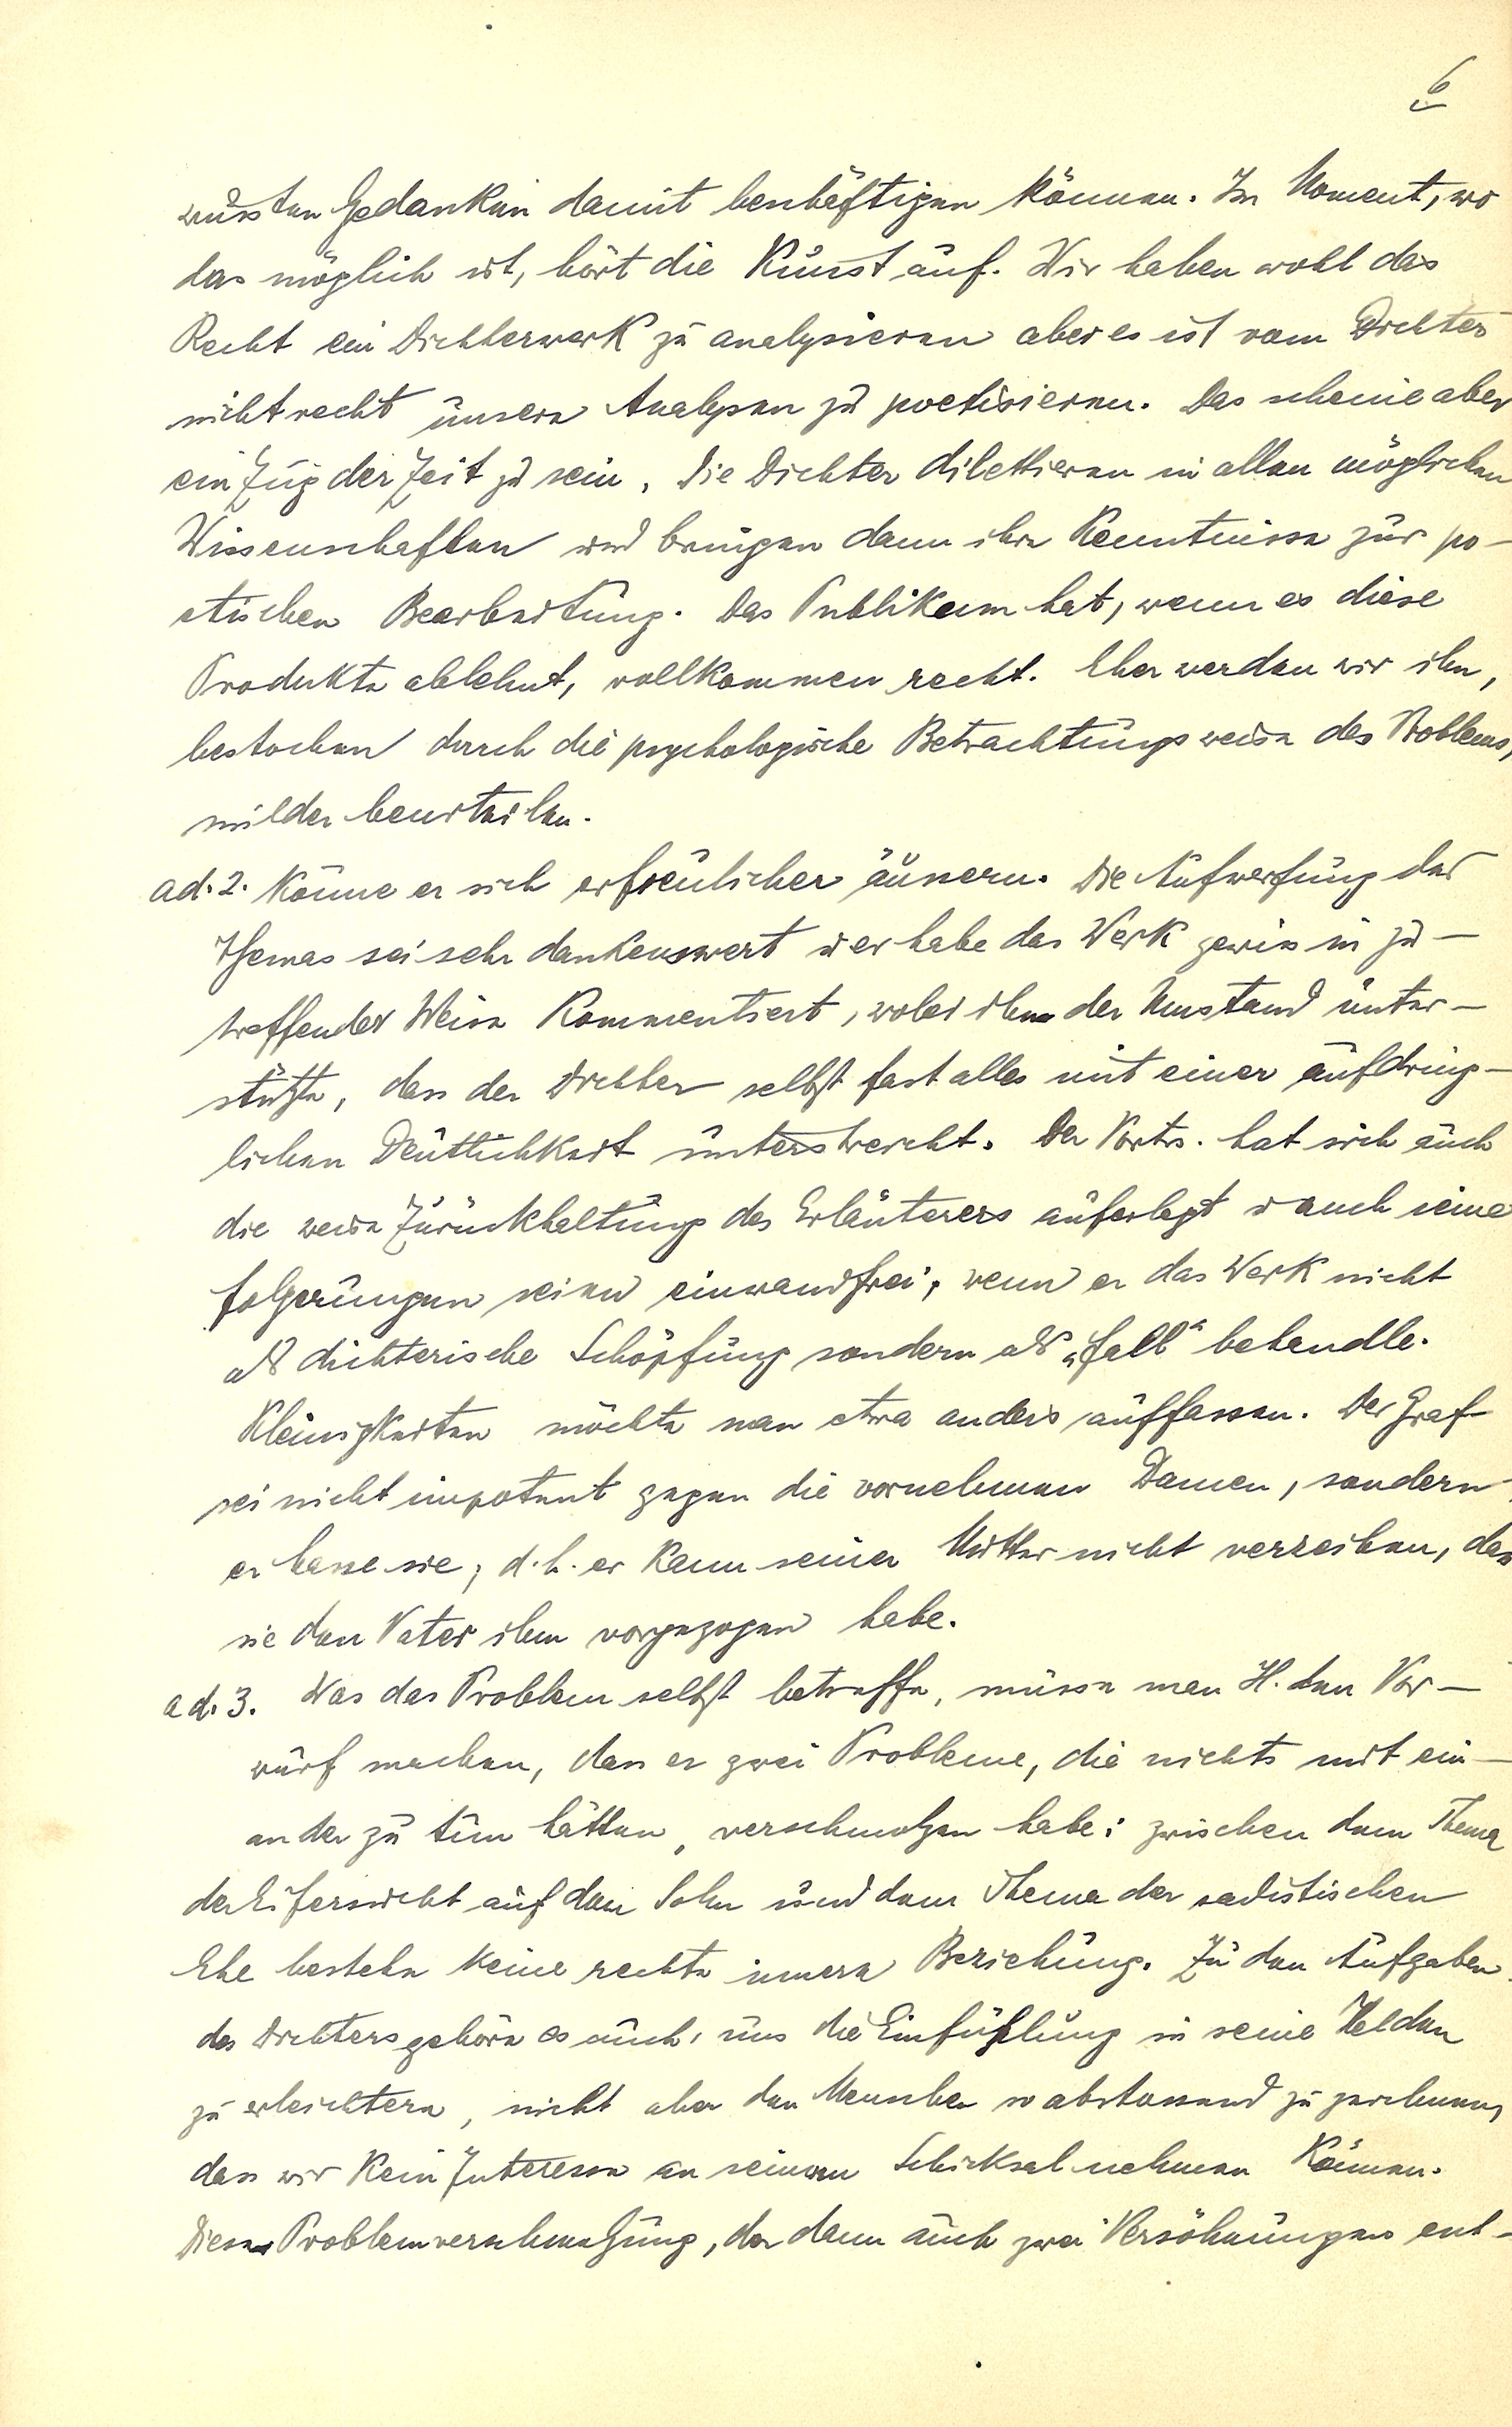 6
wussten Gedanken damit beschäftigen können. Im Moment, wo
das möglich ist, hört die Kunst auf. Wir haben wohl das
Recht ein Dichterwerk zu analysieren aber es ist vom Dichter
nicht recht unsere Analysen zu poetisieren. Das scheine aber
ein Zug der Zeit zu sein. Die Dichter dilettieren in allen möglichen
Wissenschaften und bringen dann ihre Kenntnisse zur po-
etischen Bearbeitung. Das Publikum hat, wenn es diese
Produkte ablehnt, vollkommen recht. Eher werden wir ihn,
bestochen durch die psychologische Betrachtungsweise des Problems,
milder beurteilen.
ad. 2. Könne er sich erfreulicher äussern. Die Aufwerfung des
Themas sei sehr dankenswert u er habe das Werk gewiss in zu-
treffender Weise kommentiert, wobei ihm der Umstand unter-
stützte, dass der Dichter selbst fast alles mit einer aufdring-
lichen Deutlichkeit unterstreicht. Der Vortr. hat sich auch
die weise Zurückhaltung des Erläuterers auferlegt u auch seine
Folgerungen seien einwandfrei, wenn er das Werk nicht
als dichterische Schöpfung sondern als „Fall“ behandle.
Kleinigkeiten möchte man etwa anders auffassen. Der Graf
sei nicht impotent gegen die vornehmen Damen, sondern
er hasse sie; d.h. er kann seiner Mutter nicht verzeihen, dass
sie den Vater ihm vorgezogen habe.
ad. 3. Was das Problem selbst betreffe, müsse man H. den Vor-
wurf machen, dass er zwei Probleme, die nichts mit ein-
ander zu tun hätten, verschmolzen habe: zwischen dem Thema
der Eifersucht auf den Sohn und dem Thema der sadistischen
Ehe bestehe keine rechte innere Beziehung. Zu den Aufgaben
des Dichters gehöre es auch, uns die Einfühlung in seine Helden
zu erleichtern, nicht aber den Menschen so abstossend zu zeichnen,
dass wir kein Interesse an seinem Schicksal nehmen können.
Diese Problemverschmelzung, der dann auch zwei Versöhnungen ent-